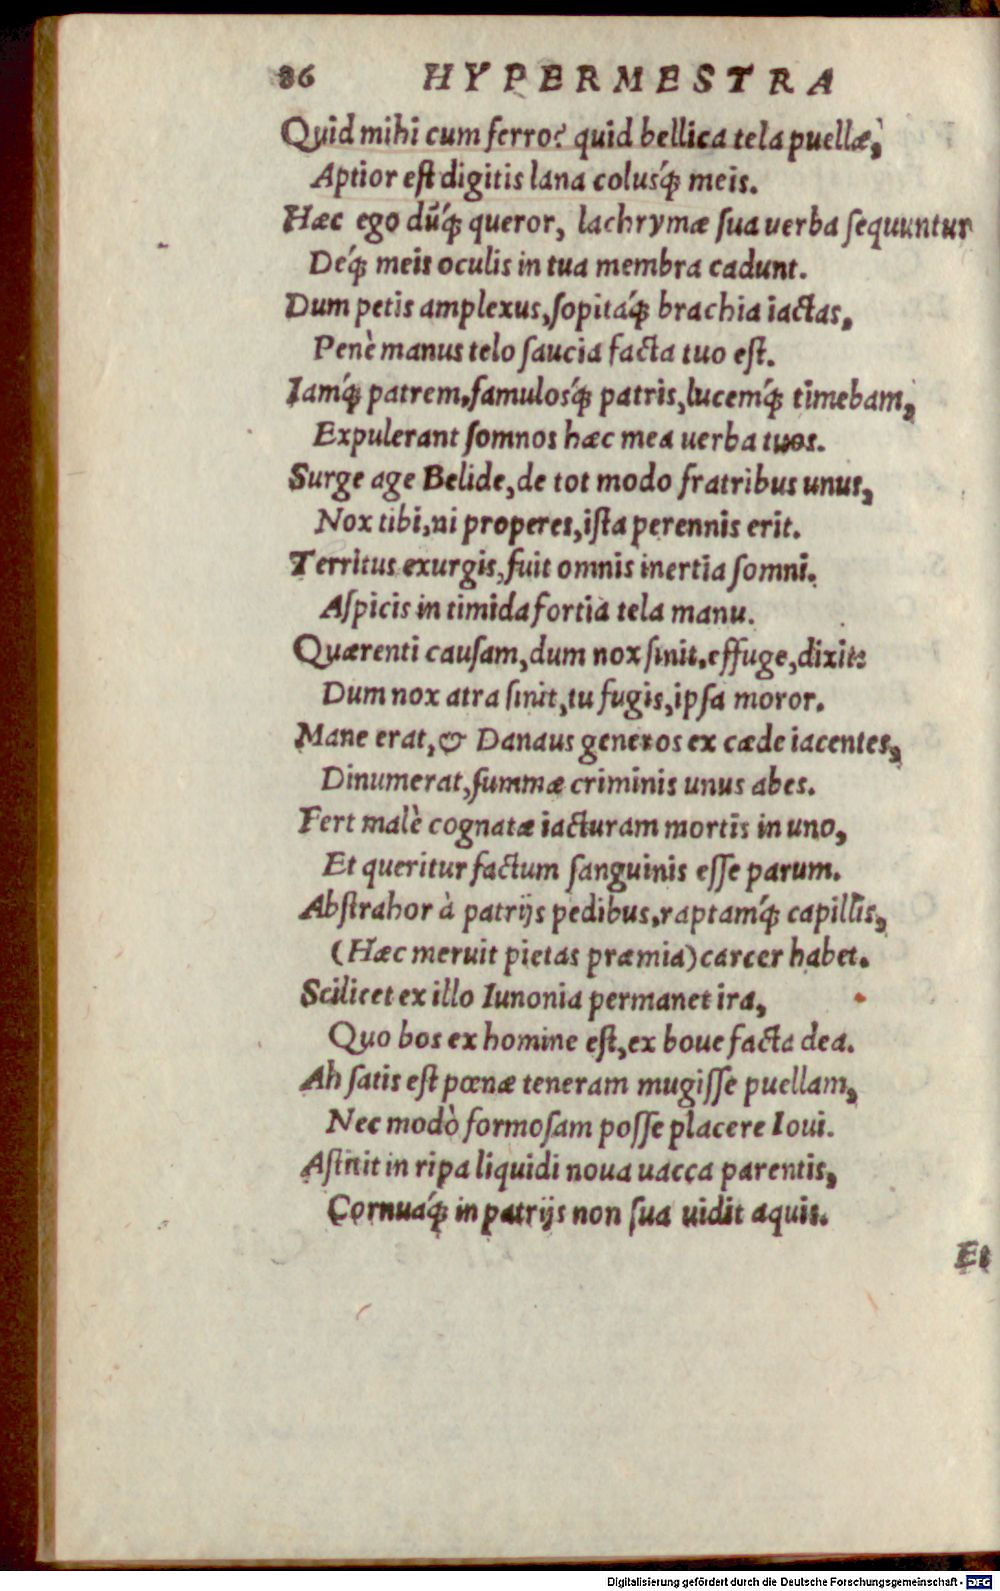 86 HYPERMESTRA
Quid mihi cum ferro? quid bellica tela puellæ,
Aptior est digitis lana colusq́; meis.
Hæc ego dũq́; queror, lachrymæ sua uerba sequuntur
Deq́; meis oculis in tua membra cadunt.
Dum petis amplexus, sopitaq́; brachia iactas,
Penè manus telo saucia facta tuo est.
Iamq́; patrem, famulosq́; patris, lucemq́; timebam,
Expulerant somnos hæc mea uerba tuos.
Surge age Belide, de tot modo fratribus unus,
Nox tibi, ni properes, ista perennis erit.
Territus exurgis, fuit omnis inertia somni.
Aspicis in timida fortia tela manu.
Quærenti causam, dum nox sinit, effuge, dixi:
Dum nox atra sinit, tu fugis, ipsa moror.
Mane erat, & Danaus generos ex cæde iacentes,
Dinumerat, summæ criminis unus abes.
Fert malè cognatæ iacturam mortis in uno,
Et queritur factum sanguinis esse parum.
Abstrahor à patrijs pedibus, raptamq́; capillis,
(Hæc meruit pietas præmia) carcer habet.
Scilicet ex illo Iunonia permanet ira,
Quo bos ex homine est, ex boue facta dea.
Ah satis est pœnæ teneram mugisse puellam,
Nec modò formosam posse placere Ioui.
Astitit in ripa liquidi noua uacca parentis,
Cornuaq́; in patrijs non sua uidit aquis.
Et
Digitalisierung gefördert durch die Deutsche Forschungsgemeinschaft - DFG